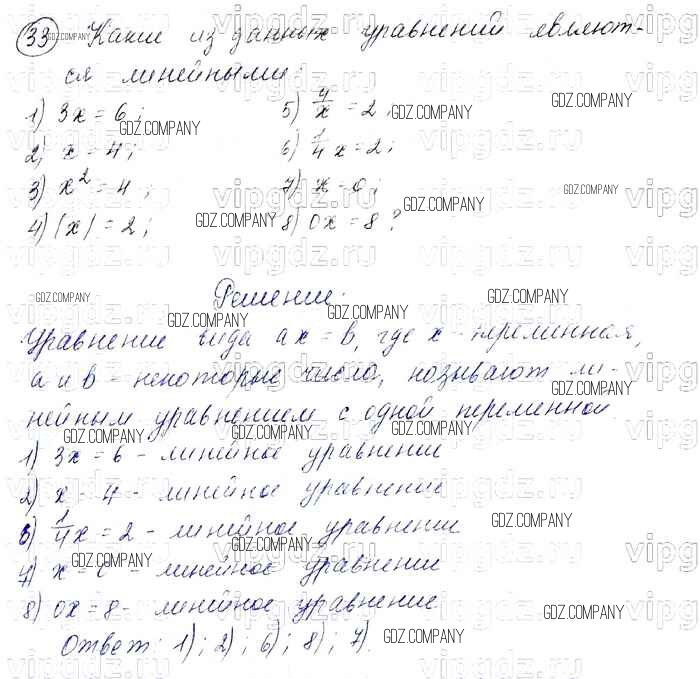 33 Какие из данных уравнений являют-
ся линейными:
1) 3x = 6; 5) 4/x = 2;
2) x = 4; 6) 1/4 x = 2;
3) x² = 4; 7) x = 0;
4) |x| = 2; 8) 0x = 8?
Решение:
Уравнение вида ax = b, где x - переменная,
a и b - некоторые числа, называют ли-
нейным уравнением с одной переменной
1) 3x = 6 - линейное уравнение
2) x - 4 - линейное уравнение
6) 1/4 x = 2 - линейное уравнение
7) x = - линейное уравнение
8) 0x = 8 - линейное уравнение
Ответ: 1); 2); 6); 8); 7).
GDZ.COMPANY
vipgdz.ru